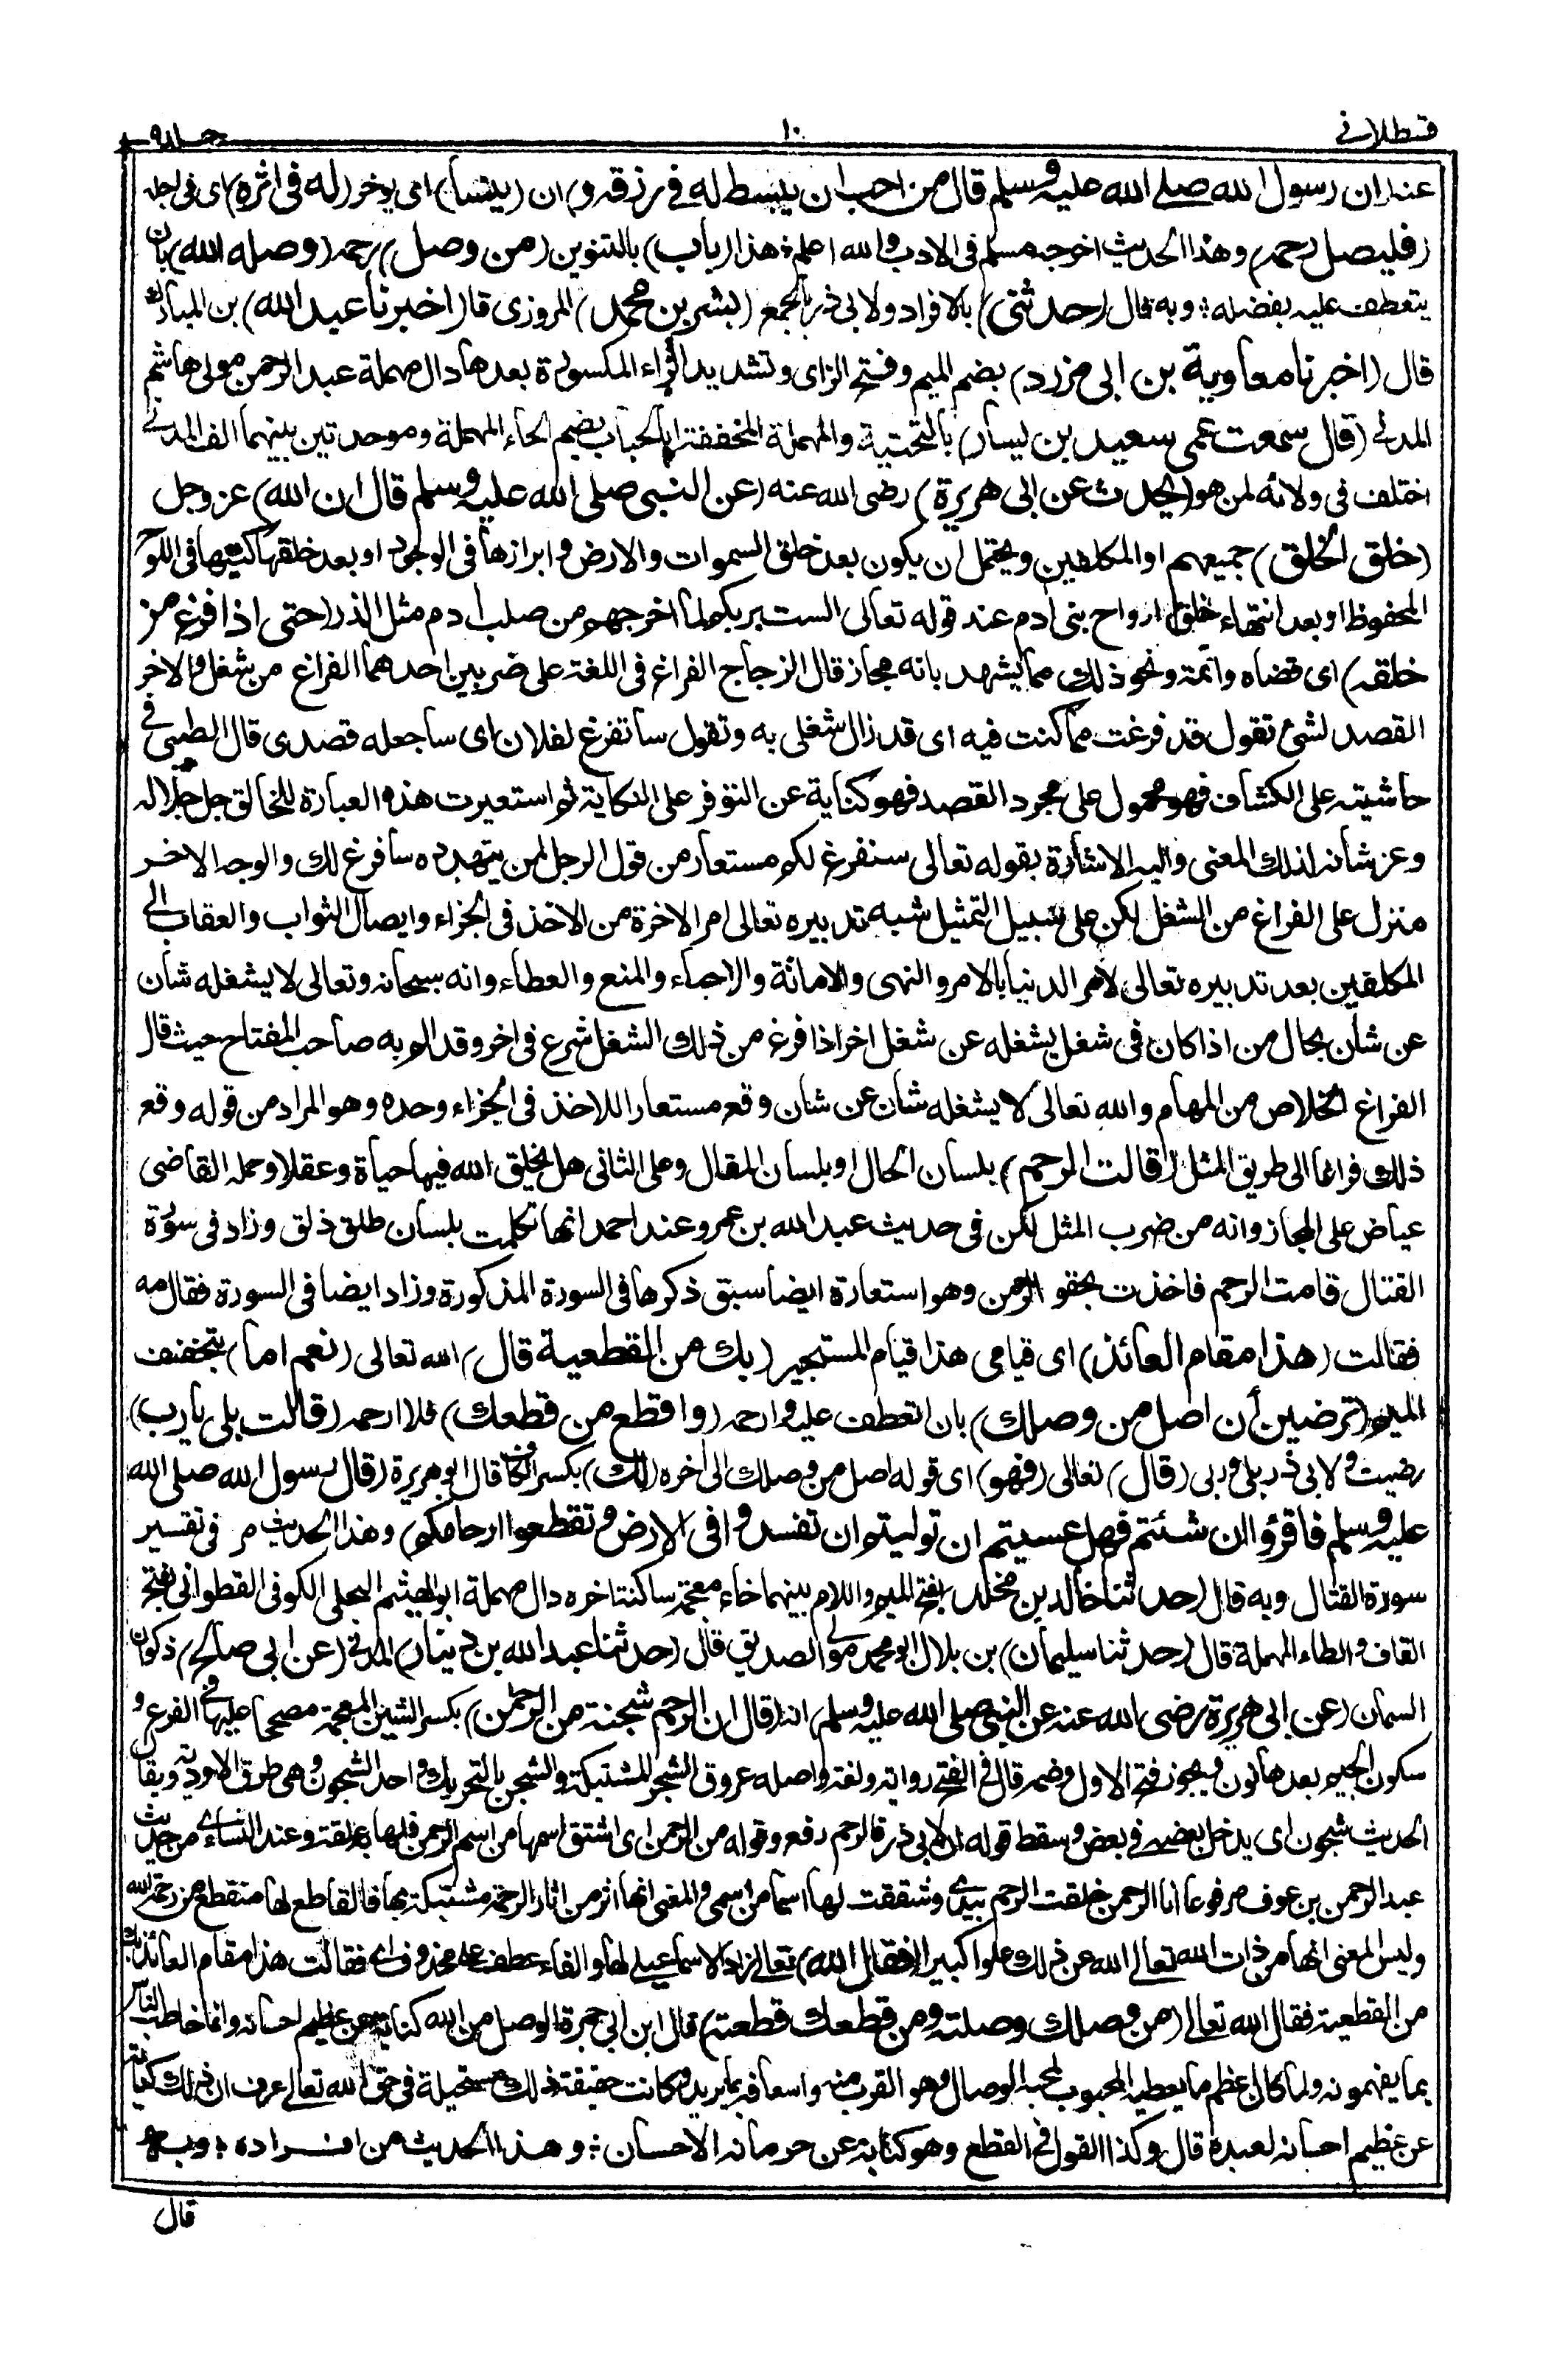 قسطلانى
١٠
جلد٩
عنه (ان رسول الله صلے الله عليه وسلم قال من احب ان يبسط له فے رزقه و) ان (ينسأ) اى يوخر (له فى اثره) اى فى اجله
(فليصل رحمه) وهذا الحديث اخرجه مسلم فى الادب والله اعلم ؛ هذا (باب) بالتنوين (من وصل) رحمه (وصله الله) بان
يتعطف عليه بفضله ؛ وبه قال (حدثنى) بالافراد ولابى ذر بالجمع (بشر بن محمد) المروزى قال (اخبرنا عبد الله) بن المبارك
قال (اخبرنا معاوية بن ابى مزرد) بضم الميم وفتح الزاى وتشديد الراء المكسورة بعدها دال مهملة عبد الرحمن مولى هاشم
المدنى (قال سمعت عمى سعيد بن يسار) بالتحتية والمهملة المخففة ابا الحباب بضم الحاء المهملة وموحدتين بينهما الف المدنے
اختلف فى ولائه لمن هو (يحدث عن ابى هريرة) رضى الله عنه (عن النبى صلى الله عليه وسلم قال ان الله) عز وجل
(خلق الخلق) جميعهم او المكلفين ويحتمل ان يكون بعد خلق السموات والارض وابرازها فى الوجود او بعد خلقها كتبها فى اللوح
المحفوظ او بعد انتهاء خلق ارواح بنى ادم عند قوله تعالى الست بربكم لما اخرجهم من صلب ادم مثل الذر (حتى اذا فرغ من
خلقه) اى قضاه واتمه ونحو ذلك مما يشهد بانه مجاز قال الزجاج الفراغ فى اللغة على ضربين احدهما الفراغ من شغل والاخر
القصد لشئ تقول قد فرغت مما كنت فيه اى قد زال شغلى به وتقول سأتفرغ لفلان اى ساجعله قصدى قال الطيبى فى
حاشيته على الكشاف فهو محمول على مجرد القصد فهو كناية عن التوفر على النكاية ثم استعيرت هذه العبارة للخالق جل جلاله
وعز شانه لذلك المعنى واليه الاشارة بقوله تعالى سنفرغ لكم مستعار من قول الرجل لمن يتهدده سافرغ لك والوجه الاخر
منزل على الفراغ من الشغل لكن على سبيل التمثيل شبه تدبيره تعالى امر الاخرة من الاخذ فى الجزاء وايصال الثواب والعقاب الى
المكلفين بعد تدبيره تعالى لامر الدنيا بالامر والنهى والاماتة والاحياء والمنع والعطاء وانه سبحانه وتعالى لا يشغله شأن
عن شأن بحال من اذا كان فى شغل يشغله عن شغل اخر اذا فرغ من ذلك الشغل شرع فى اخر وقد الم به صاحب المفتاح حيث قال
الفراغ الخلاص من المهام والله تعالى لا يشغله شان عن شان وقع مستعارا للاخذ فى الجزاء وحده وهو المراد من قوله وقع
ذلك فراغا الى طريق المثل (قالت الرحم) بلسان الحال او بلسان المقال وعلى الثانى هل يخلق الله فيها حياة وعقلا وحمله القاضى
عياض على المجاز وانه من ضرب المثل لكن فى حديث عبد الله بن عمرو عند احمد انها تكلمت بلسان طلق ذلق وزاد فى سورة
القتال قامت الرحم فاخذت بحقو الرحمن وهو استعارة ايضا سبق ذكرها فى السورة المذكورة وزاد ايضا فى السورة فقال مه
فقالت (هذا مقام العائذ) اى قيامى هذا قيام المستجير (بك من القطعية قال) الله تعالى (نعم اما) بتخفيف
الميم (ترضين أن اصل من وصلك) بان اتعطف عليه وارحمه (واقطع من قطعك) فلا ارحمه (قالت بلى يارب)
رضيت ولابى ذر بلى وربى (قال) تعالى (فهو) اى قوله اصل من وصلك الى اخره (لك) بكسر الكاف قال ابو هريرة (قال رسول الله صلى الله
عليه وسلم فاقرؤا ان شئتم فهل عسيتم ان توليتم ان تفسدوا فى الارض وتقطعوا ارحامكم) وهذا الحديث مر فى تفسير
سورة القتال وبه قال (حدثنا خالد بن مخلد) بفتح الميم واللام بينهما خاء معجمة ساكنة اخره دال مهملة ابو الهيثم البجلى الكوفى القطوانى بفتح
القاف والطاء المهملة قال (حدثنا سليمان) بن بلال ابو محمد مولى الصديق قال (حدثنا عبد الله بن دينار) المدنى (عن ابى صالح) ذكوان
السمان (عن ابى هريرة رضى الله عنه عن النبى صلى الله عليه وسلم) انه (قال ان الرحم شجنة من الرحمن) بكسر الشين المعجمة مصححا عليها فى الفرع و
سكون الجيم بعدها نون ويجوز فتح الاول وضمه قال فى الفتح رواية ولغة واصله عروق الشجر المشتبكة والشجن بالتحريك واحد الشجون وهى طرق الاودية ويقال
الحديث شجون اى يدخل بعضه فى بعض وسقط قوله ان لابى ذر فالرحم رفع وقوله من الرحمن اى اشتق اسمها من اسم الرحمن فلها به علقة وعند النساءى من حديث
عبد الرحمن بن عوف مرفوعا انا الرحمن خلقت الرحم بيدى وشققت لها اسما من اسمى والمعنى انها اثر من اثار الرحمة مشتبكة بها فالقاطع لها منقطع من رحمة الله
وليس المعنى انها من ذات الله تعالى الله عن ذلك علوا كبيرا (فقال الله) تعالے زاد الاسماعيلى لها والفاء عطف على محذوف اى فقالت هذا مقام العائذ بك
من القطيعة فقال الله تعالے (من وصلك وصلته ومن قطعك قطعته) قال ابن ابى جمرة الوصل من الله كناية عن عظيم احسانه وانما خاطب الناس
بما يفهمونه ولما كان اعظم ما يعطيه المحبوب لمحبه الوصال وهو القرب منه واسعافه بما يريد وكانت حقيقة ذلك مستحيلة فى حق الله تعالے عرف ان ذلك كناية
عن عظيم احسانه لعبده قال وكذا القول فى القطع وهو كناية عن حرمانه الاحسان ؛ وهذا الحديث من افراده ؛ وبه
قال